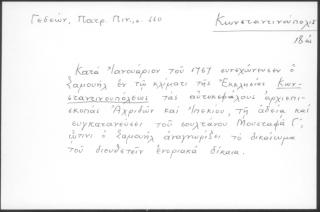 Γεδεών, Πατρ. Πιν., σ. 660
Κωνσταντινούπολις
18ος
Κατά Ἰανουάριον τοῦ 1767 συνεχώνευσεν ὁ
Σαμουήλ ἐν τῷ κλίματι τῆς Ἐκκλησίας Κων-
σταντινουπόλεως τάς αὐτοκεφάλους ἀρχιεπι-
σκοπάς Ἀχριδῶν καί Ἰπεκίου, τῇ ἀδείᾳ καί
συγκατανεύσει τοῦ σουλτάνου Μουσταφᾶ Γ',
ὅστις ὁ Σαμουήλ ἀναγνωρίζει τό δικαίωμα
τοῦ διευθετεῖν ἐνοριακά δίκαια.